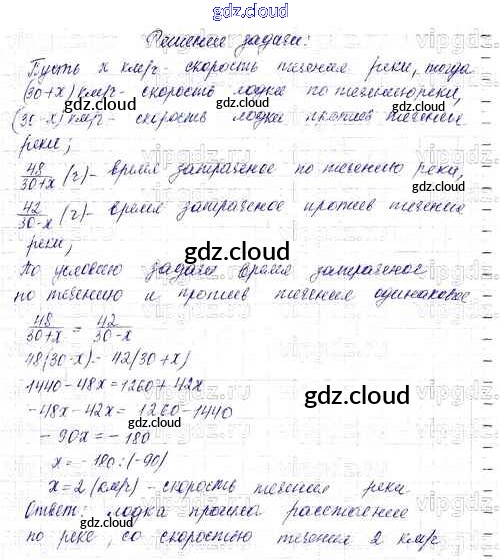 gdz.cloud
Решение задачи:
Пусть x км/г - скорость течения реки, тогда
(30+x) км/г - скорость лодки по течению реки,
(30-x) км/г - скорость лодки против течения
реки;
48/30+x (г) - время затраченое по течению реки,
42/30-x (г) - время затраченое против течения
реки;
По условию задачи время затраченое
по течению и против течения одинаковое
48/30+x = 42/30-x
48(30-x) = 42(30+x)
1440-48x=1260+42x
-48x-42x= 1260-1440
-90x=-180
x=-180:(-90)
x=2 (км/г) - скорость течения реки
Ответ: лодка прошла расстояние
по реке, со скоростью течения 2 км/г.
gdz.cloud
gdz.cloud
gdz.cloud
gdz.cloud
gdz.cloud
gdz.cloud
gdz.cloud